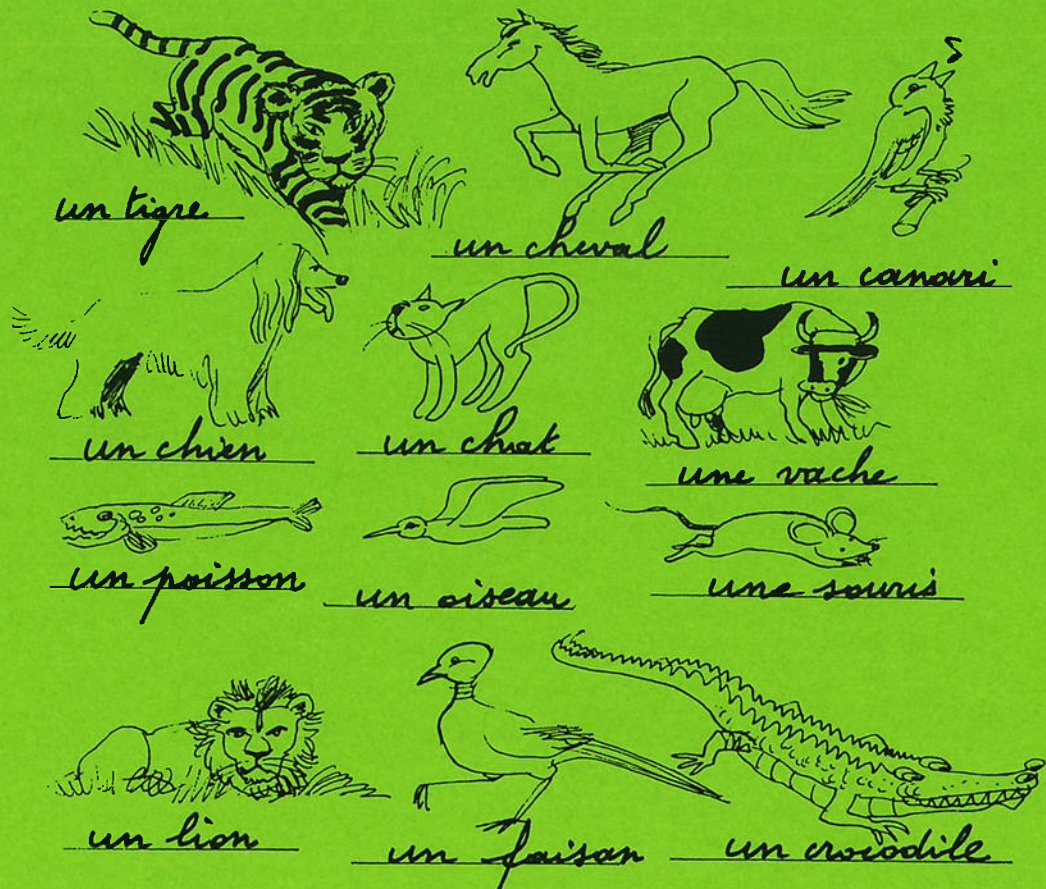 un tigre
un cheval
un canari
un chien
un chat
une vache
un poisson
un oiseau
une souris
un lion
un faisan
un crocodile